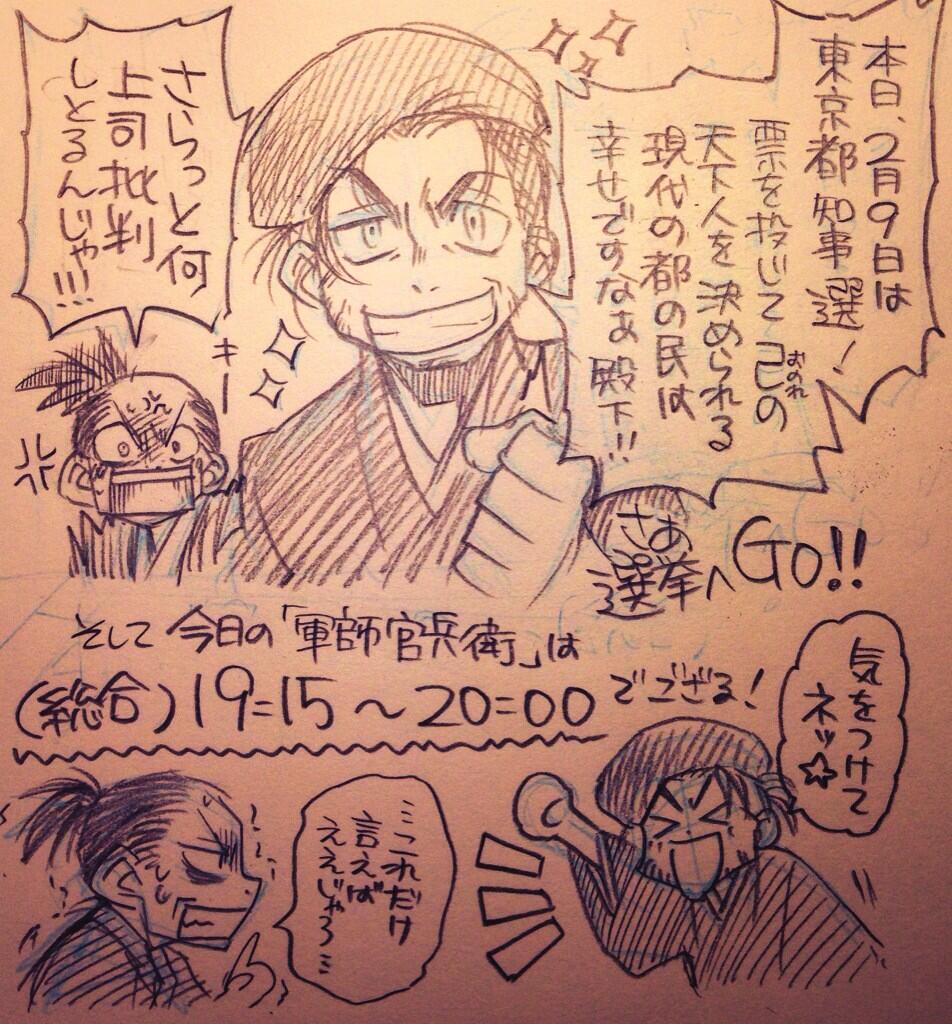 本日、2月9日は
東京都知事選!
票を投じて己の
おのれ
天下人を決められる
現代の都の民は
幸せですなぁ殿下!!
さらっと何
上司批判
しとるんじゃ!!!
キー
さあ
選挙へGO!!
そして今日の「軍師官兵衛」は
(総合)19:15~20:00でござる!
気をつけて
ネッ☆
…これだけ
言えば
ええじゃろ…